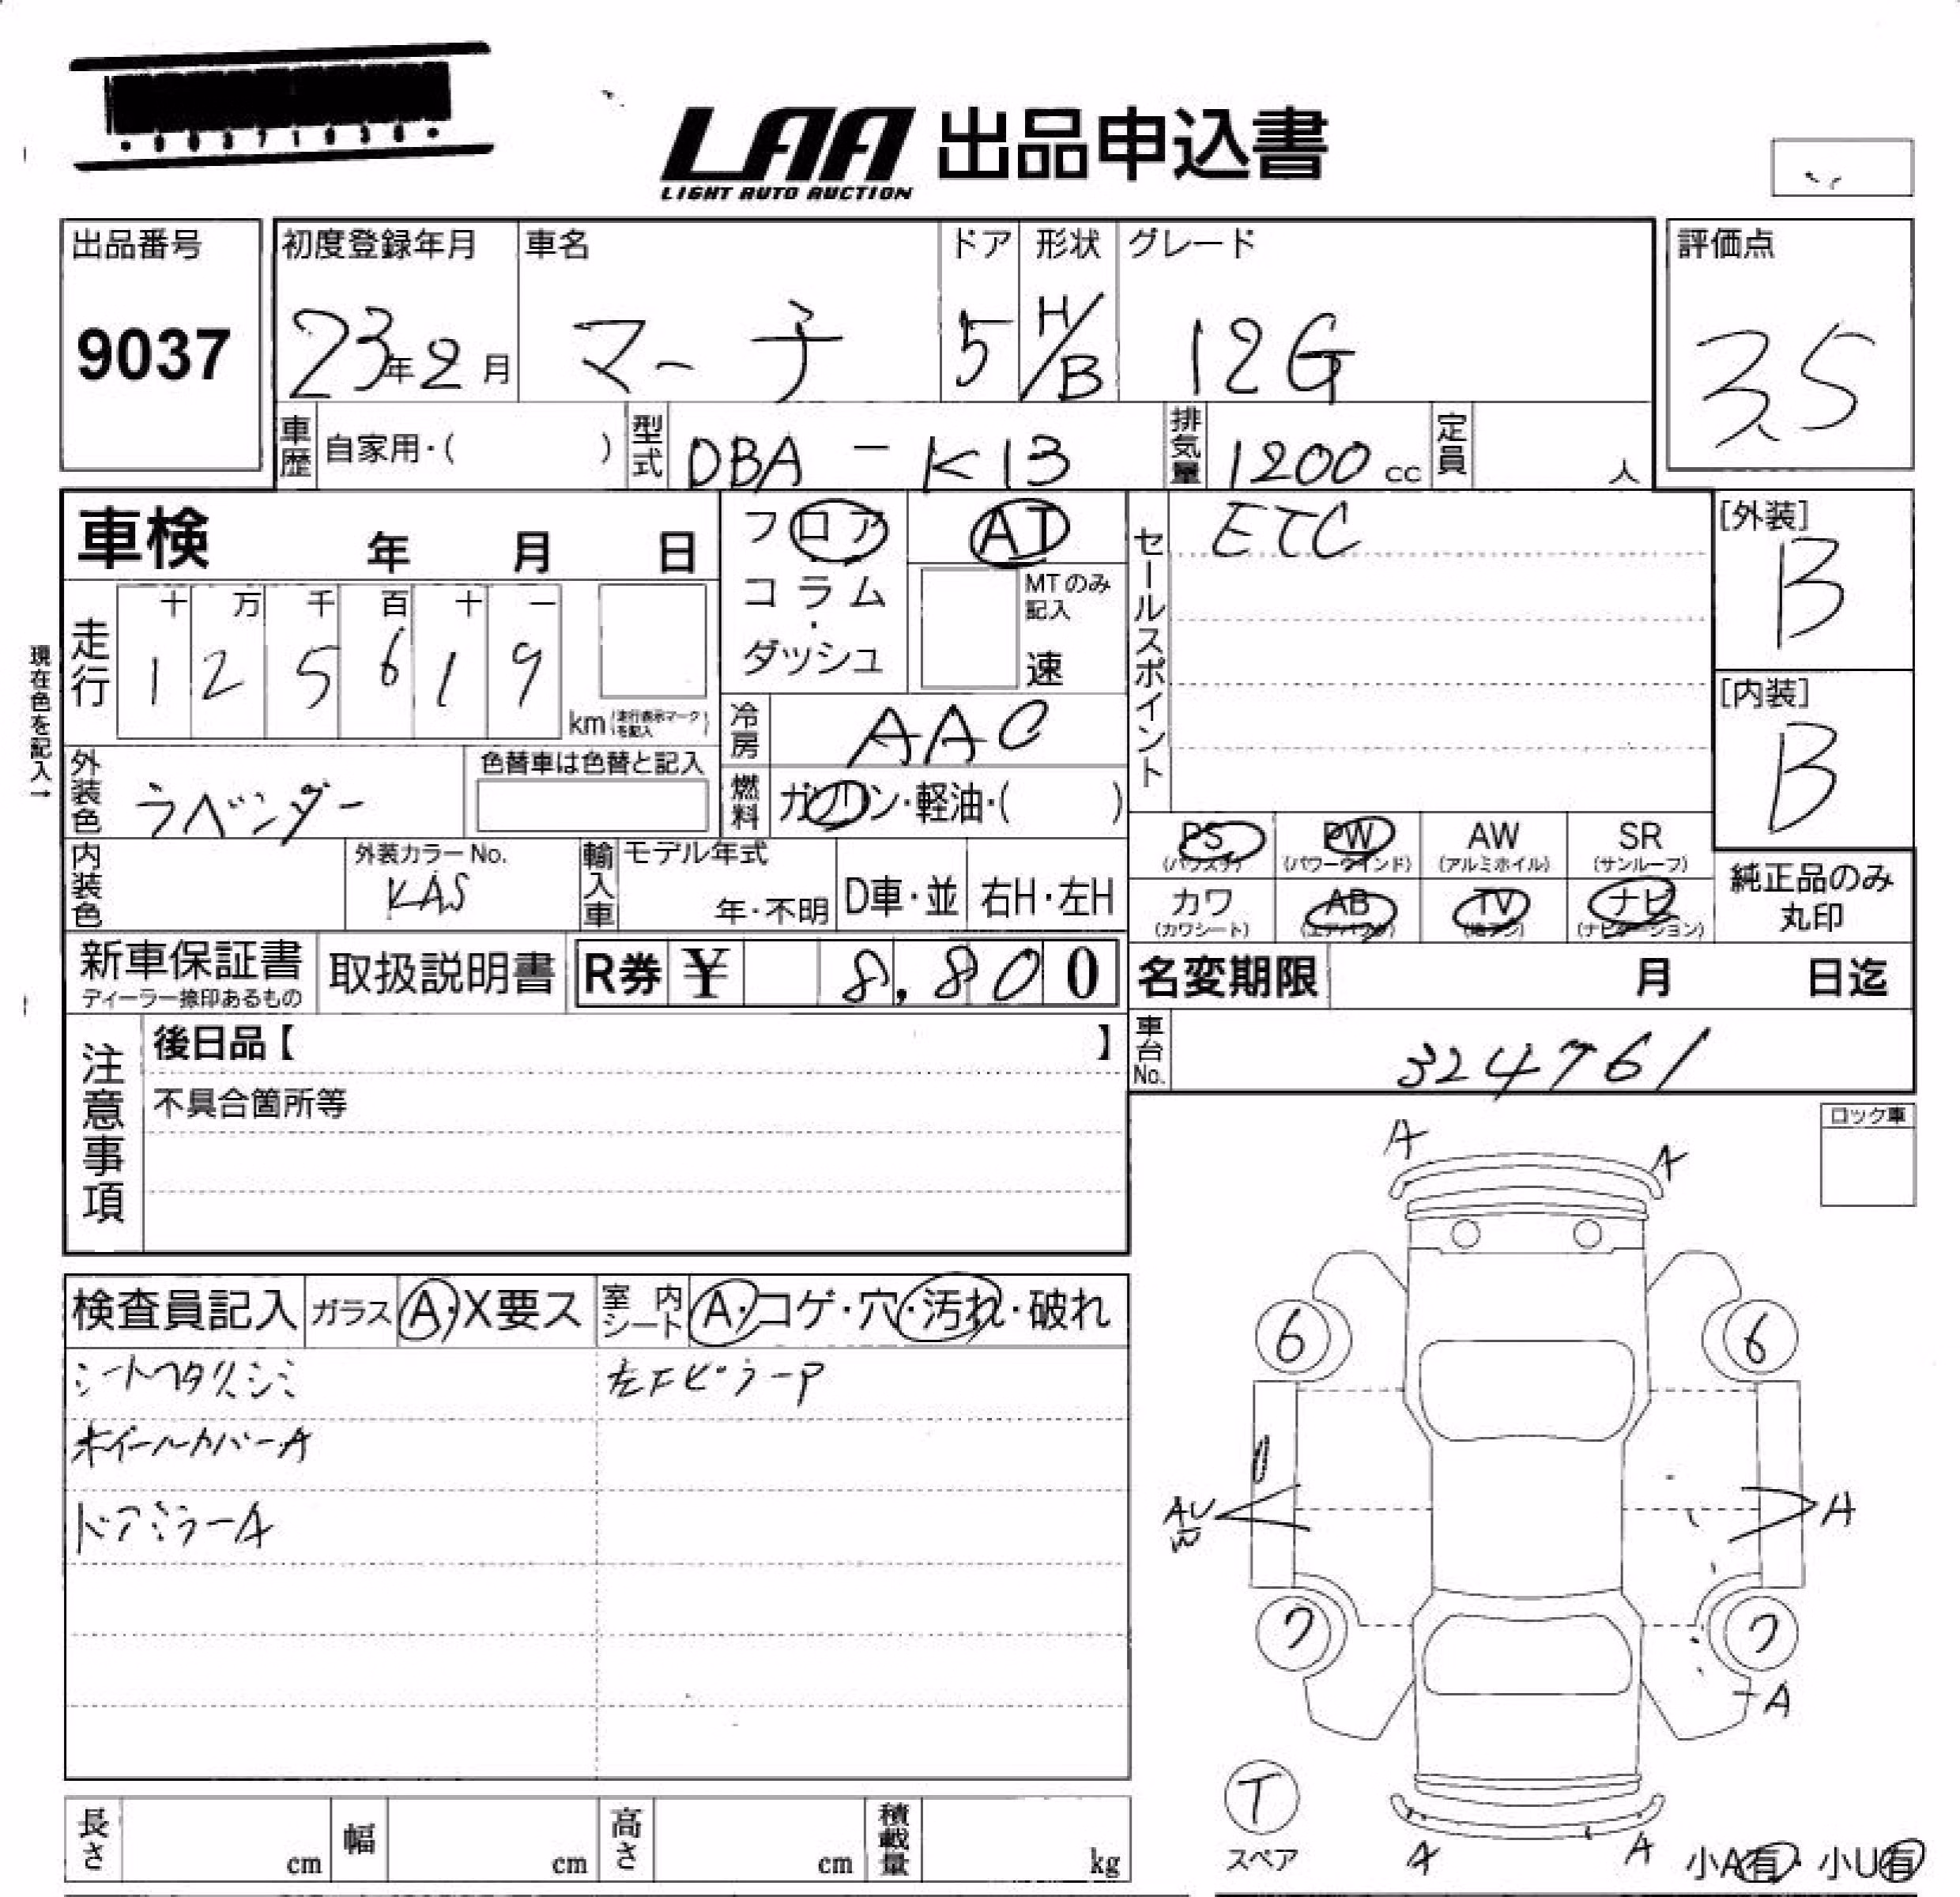 LAA 出品申込書
LIGHT AUTO AUCTION
出品番号
9037
初度登録年月
23年2月
車名
マーチ
ドア
5
形状
H/B
グレード
12G
評価点
3.5
車歴 自家用・( )
型式 DBA-K13
排気量 1200 cc
定員 人
車検 年 月 日
走行
十 万 千 百 十 一
1 2 5 6 1 9
km (走行表示マークを記入)
現在色を記入→
フロア
コラム・
ダッシュ
AT
MTのみ記入
速
冷房 AAC
燃料 ガソリン・軽油・( )
セールスポイント
ETC
[外装]
B
[内装]
B
外装色 ラベンダー
色替車は色替と記入
内装色
外装カラーNo.
KAS
輸入車 モデル年式
年・不明
D車・並
右H・左H
PS (パワステ)
PW (パワーウインド)
AW (アルミホイル)
SR (サンルーフ)
カワ (カワシート)
AB (エアバック)
TV (地デジ)
ナビ (ナビゲーション)
純正品のみ
丸印
新車保証書
ディーラー捺印あるもの
取扱説明書
R券 ¥ 8,800
名変期限 月 日迄
車台No. 324761
注意事項
後日品【 】
不具合箇所等
ロック車
検査員記入
ガラス A・X要ス
室内シート A・コゲ・穴・汚れ・破れ
シートヘタリ、シミ
左Fピラー P
ホイールカバーA
ドアミラーA
A
A
6
6
AU
A
7
7
A
T
スペア
A
A
小A有・小U有
長さ cm
幅 cm
高さ cm
積載量 kg